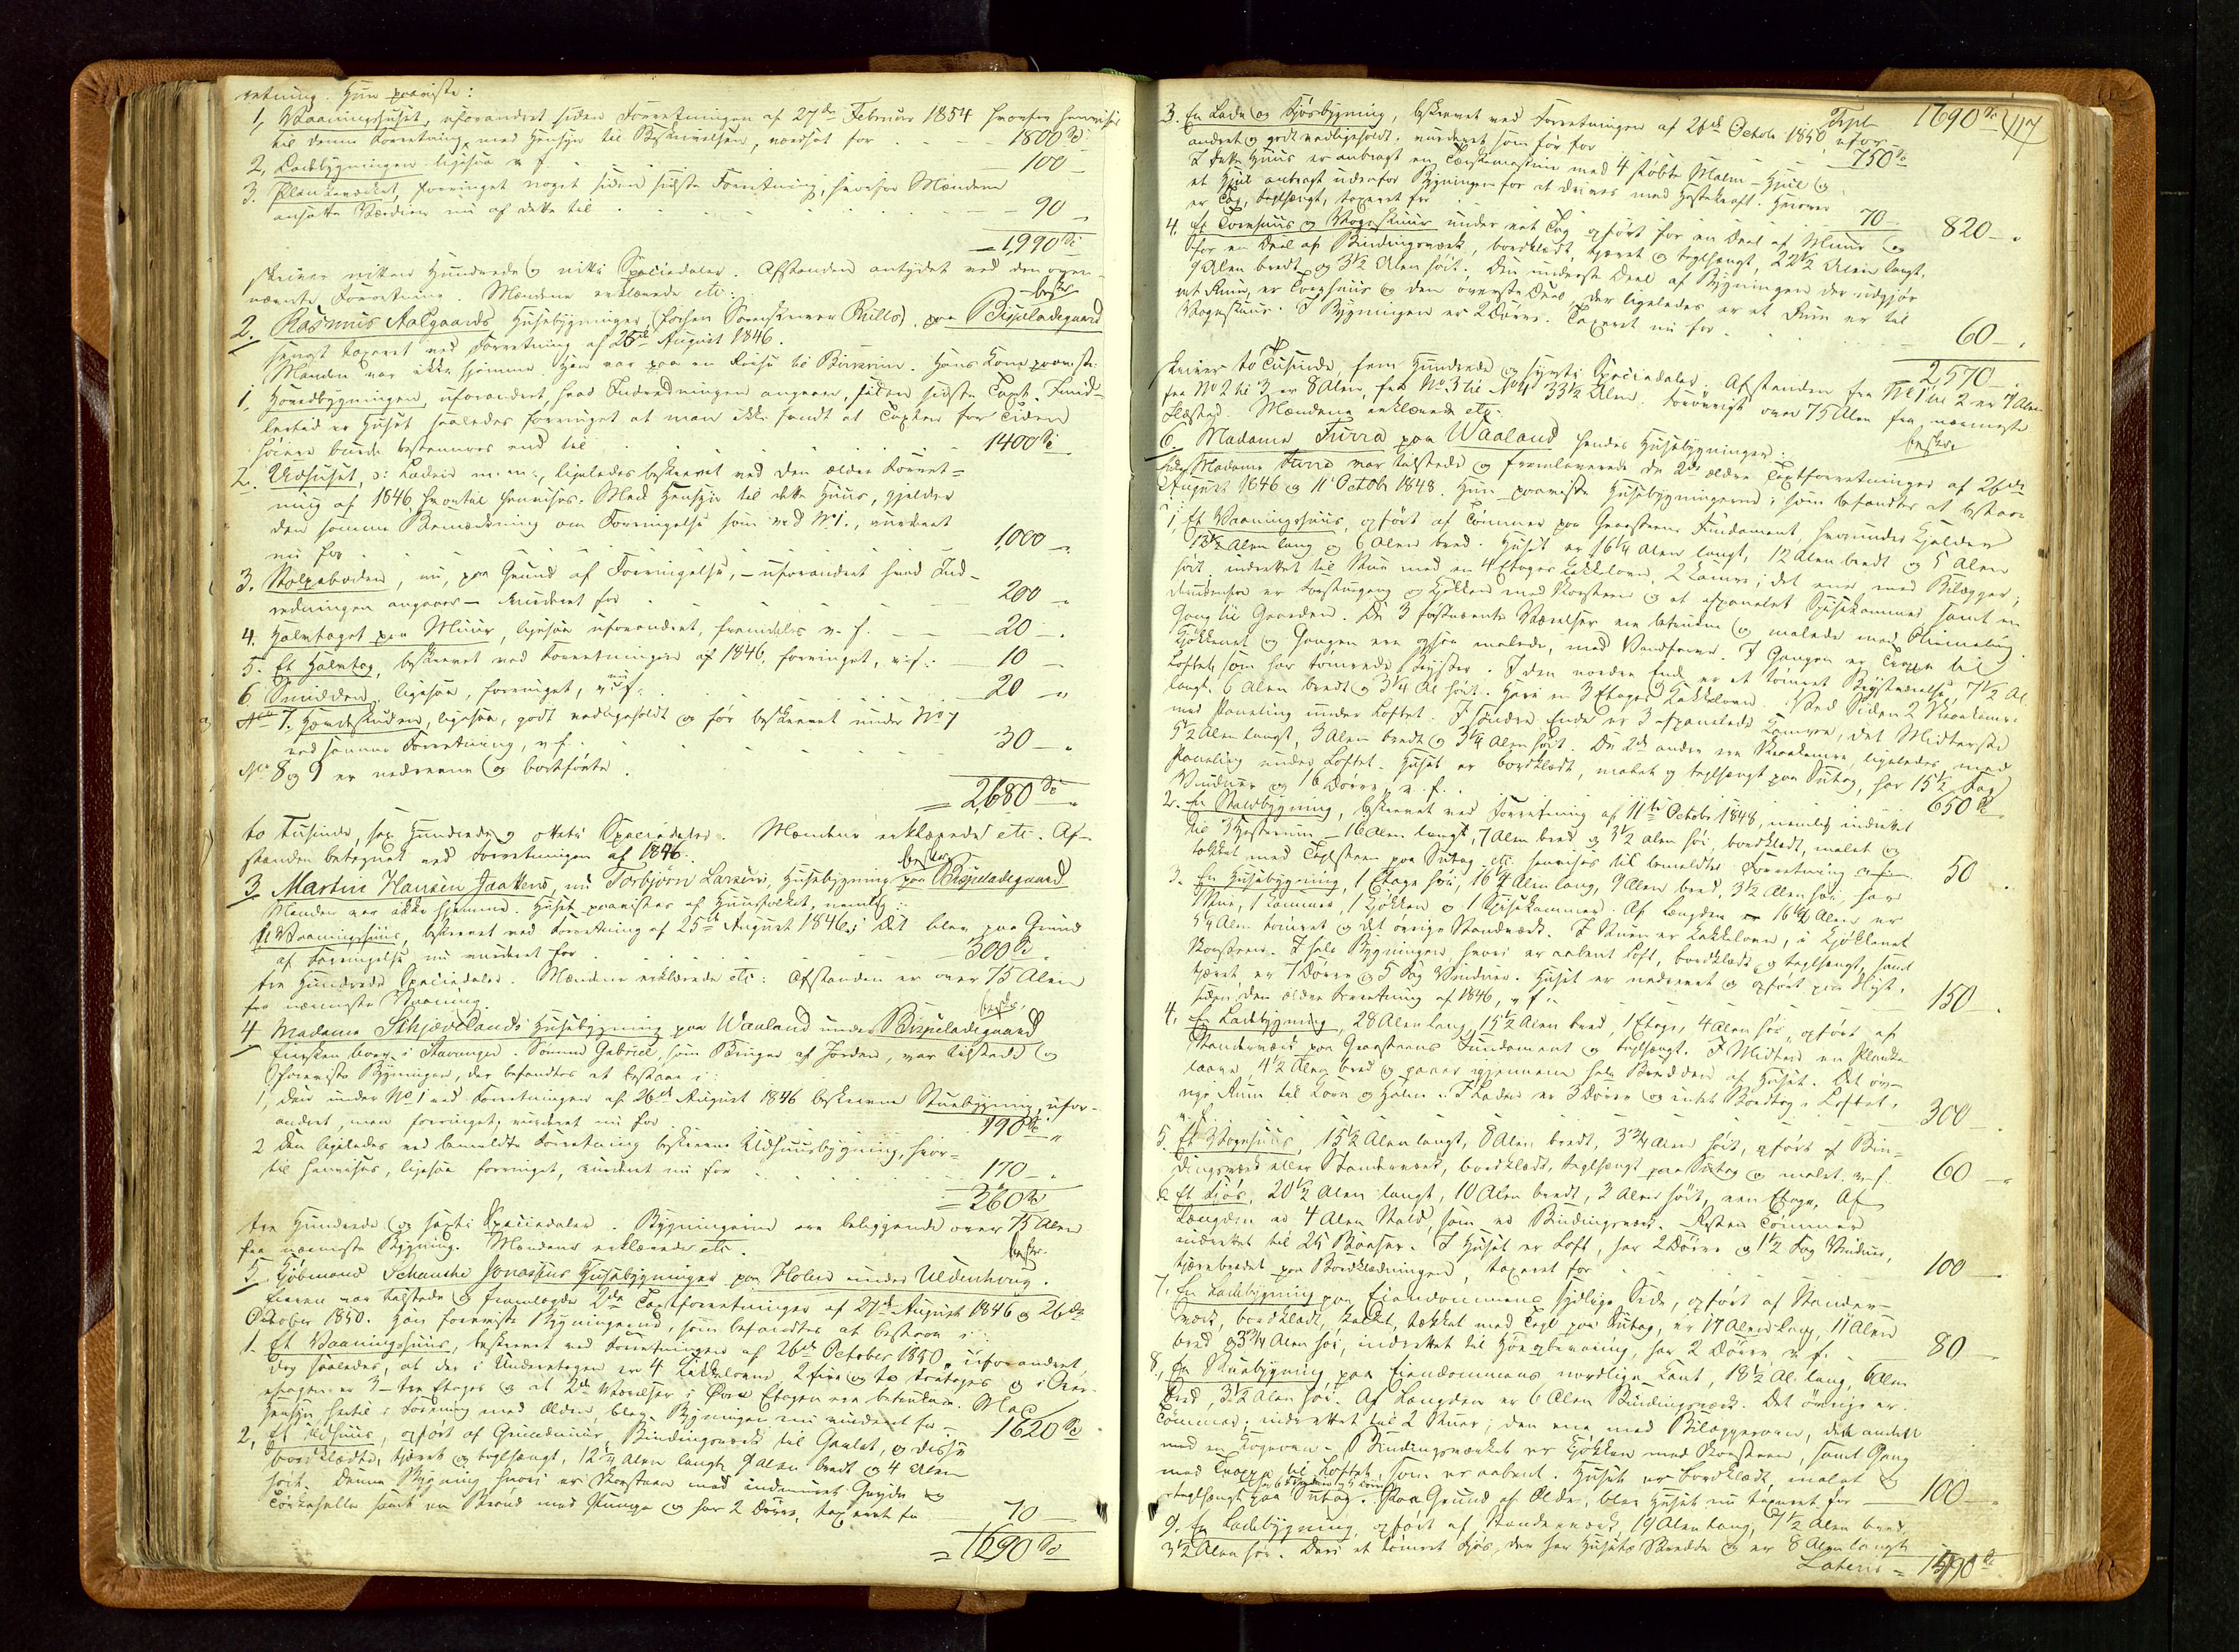 retning. Hun paaviste:
1, Vaaningshuset, uforandret siden Forretningen af 27de Februar 1854 hvorfor henvises
til denne Forretning, med Hensyn til Beskrivelsen, vurdeert for 1800 Sp
2, Ladebygningen ligesaa v. f. 100 -
3. Plankeværket, forringet noget siden sidste Forretning, hvorfor Mændene
ansatte Værdien nu af dette til 90 -
= 1,990 Sp
skriver nitten Hundrede og nitti Speciedaler. Afstanden antydet ved den oven-
nævnte Forretning. Mændene erklærede etc:
beskr.
2. Rasmus Aalgaards Husebygninger (forhen Sorenskriver Rülls) paa Bispeladegaard
sengst taxeret ved Forretning af 26de August 1846.
Manden var ikke hjemme. Han var paa en Reise til Birkrim. Hans Kone paaviste:
1, Hovedbygningen, uforandret, hvad Indredningen angaaer, siden sidste Taxt. Imid-
lertid er Huset saaledes forringet at man ikke fandt at Taxten for Tiden
høiere burde bestemmes end til 1400 Sp
2. Udhuset, ɔ: Laden m. m:, ligeledes beskrevet ved den ældre Forret-
ning af 1846, hvortil henvises. Med Hensyn til dette Huus, gjelder
den samme Bemærkning om Forringelse som ved No 1., vurderet
nu for 1,000 -
3. Stolpeboden, nu, paa Grund af Forringelse, - uforandret hvad Ind-
redningen angaaer - vurderet for 200 -
4. Halvtaget paa Muur, ligesaa uforandret, fremdeles v. f. 20 -
5. Et Halvtag, beskrevet ved Forretningen af 1846, forringet, v: f: 10 -
6 Smidden, ligesaa, forringet, v. nu f. 20 -
No 7. Hønsehuset, ligesaa, godt vedligeholdt og før beskrevet under No 7
ved samme Forretning, v f. 30 -
No 8 og 9 er nedrevne og bortførte.
= 2,680 Sp
to tusinde, sex Hundrede og otteti Speciedaler. Mændene erklærede etc. Af-
standen betegnet ved Forretningen af 1846.
beskr.
3, Martin Hansen Jaattens, nu Torbjørn Larsens, Husebygning paa Bispeladegaard
Manden var ikke hjemme. Huset paavistes af Huusfolket, nemlig:
Et Vaaningshuus, beskrevet ved Forretning af 25de August 1846; det blev paa Grund
af Forringelse nu vurderet for 300 Sp
tre Hundrede Speciedaler. Mændene erklærede etc: Afstanden er over 75 Alen
fra nærmeste Vaaning.
beskr.
4 Madame Schjævelands Husebygning paa Waaland under Bispeladegaard
Eiersken boer i Stavanger. Sønnen Gabriel, som Bruger af Jorden, var tilstede og
foreviste Bygningen, der befandtes at bestaae i:
1, den under No 1 ved Forretningen af 26de August 1846 beskrevne Stuebygning, ufor-
andret, men forringet, vurderet nu for 190 Sp
2 Den ligeledes ved bemeldte Forretning beskrevne Udhuusbygning, hvor-
til henvises, ligesaa forringet, vurderet nu for 170 -
= 360 Sp
tre Hundrede og sexti Speciedaler. Bygningerne ere beliggende over 75 Alen
fra nærmeste Bygning. Mændene erklærede etc.
beskr.
5 Kjøbmand Schanche Jonassens Husebygninger paa Holen under Uldenhoug.
Eieren var tilstede og fremlagde 2de Taxtforretninger af 27de August 1846 og 26de
October 1850. Han foreviste Bygningerne, som befandtes at bestaae i:
1. Et Vaaningshuus, beskrevet ved Forretningen af 26de October 1850, uforandret,
dog saaledes, at der i Underetagen er 4 Kakkelovne, 2 fire og to toetages og i Over-
etagen er 3 - tre Etages og at 2de Værelser i Øvre Etagen ere betrukne. Med
Hensyn hertil i Forening med Ælden, blev Bygningen nu vurderet for 1620 Sp
2, Et Udhuus, opført af Gruedmuur, Bindingsværk til Gavlet, og disse
bordklædte, tjæret og teglhængt, 12 1/4 Alen langt 9 Alen bredt og 4 Alen
høit. Denne Bygning hvori er Skorsteen med indmuret Gryde og
Tørkehelle samt en Brønd med Pumpe og har 2 Dørre, taxeret for 70 -
= 1690 Sp
Trpt. 1690 Sp 117
3. En Lade og Fjøsbygning, beskrevet ved Forretningen af 26de Octobr 1850, ufor-
andret og godt vedligeholdt, vurderet som før for 750 Sp
I dette Huus er anbragt en Tærskemaskine med 4 støbte Malm-Hjul og
et Hjul anbragt udenfor Bygningen for at drives med Hestekraft. Herover
er Tag, teglhængt, taxeret for 70 - 820 -
4. Et Tørvhuus og Vognskuur under eet Tag opført for en Deel af Muur og
for en Deel af Bindingsværk, bordklædt, tjæret og teglhængt, 22 1/2 Alen langt,
9 Alen bredt og 3 1/2 Alen høit. Den underste Deel af Bygningen der udgjør
eet Rum, er Tørvhuus og den øverste Deel, der ligeledes er et Rum er til
Vognskuur. I Bygningen er 2 Dørre. Taxeret nu for 60 -
2570 -
skriver to Tusinde, fem Hundrede og syvti Speciedaler. Afstanden fra No 1 til 2 er 7 Alen
fra No 2 til 3 er 8 Alen, fra No 3 til No 4 33 1/2 Alen. Forøvrigt over 75 Alen fra nærmeste
Ildsted. Mændene erklærede etc.
beskr.
6. Madame Furra paa Waaland hendes Husebygninger.
Madame Furra var tilstede og fremleverede de 2de ældre Taxtforretninger af 26de
August 1846 og 11 Octobr 1848. Hun paaviste Husebygningerne, som befandtes at bestaae i:
1, Et Vaaningshuus, opført af Tømmer paa Graasteens Fundament, hvorunder Kjelder
13 1/2 Alen lang og 6 Alen bred. Huset er 16 1/4 Alen langt, 12 Alen bredt og 5 Alen
høit, indrettet til Stue med en 4 Etages Kakkelovn, 2 Kamre; i det ene med Bilægger;
desuden er Forstuegang og Kjøkken med Skorsteen og et afpanelet Spiisekammer samt en
Gang til Gaarden. De 3 førstnævnte Værelser ere betrukne og malede med Oliemaling.
Kjøkkenet og Gangen ere ogsaa malede, med Vandfarve. I Gangen er Trappe til
Loftet, som har tømrede Røster. I den nordre Ende er et tømret Røstværelse, 7 1/2 Al.
langt, 6 Alen bredt og 3 1/4 Al høit. Heri en 3 Etages Kakkelovn. Ved Siden 2 Skraakamre
med Paneling under Loftet. I søndre Ende er 3 afpanelede Kamre, det Midterste
5 1/2 Alen langt, 3 Alen bredt og 3 1/4 Alen høit. De 2de andre ere Skraakamre, ligeledes med
Paneling under Loftet. Huset er bordklædt, malet og teglhængt paa Sutag, har 15 1/2 Fag
Vinduer og 16 Dørre, v. f. 650 Sp
2. En Staldbygning, beskrevet ved Forretning af 11te Octobr 1848, nemlig indrettet
til 3 Hesterum - 16 Alen langt, 7 Alen bred og 3 1/2 Alen høi, bordklædt, malet og
tækket med Taglsteen paa Sutag etc. henvises til bemeldte Forretning 50 -
3. En Husebygning, 1 Etage høi, 16 1/4 Alen lang, 9 Alen bred, 3 1/2 Alen høi, har
Stue, 1 Kammer, 1 Kjøkken og 1 Spiisekammer. Af Længden 16 1/4 Alen er
5 1/4 Alen tømret og det øvrige Standværk. I Stuen er Kakkelovn, i Kjøkkenet
Skorsteen. I hele Bygningen, hvori er aabent Loft, bordklædt og teglhængt, samt
tjæret, er 7 Dørre og 5 Fag Vinduer. Huset er nedrevet og opført paa Nyt,
siden den ældre Forretning af 1846, v f. 150 -
4, En Ladebygning, 28 Alen lang, 15 1/2 Alen bred, 1 Etage, 4 Alen høi, opført af
Standerværk paa Graasteens Fundament og teglhængt. I Midten en Planke
laave, 4 1/2 Alen bred og gaaer igjennem hele Bredden af Huset. Det øv-
rige Rum til Korn og Halm. I Laden er 3 Dørre og intet Bordtag i Loftet,
v. f. 300 -
5. Et Vognhuus, 15 1/2 Alen langt, 8 Alen bredt, 3 3/4 Alen høit, opført af Bin-
dingsværk eller Standerværk, bordklædt, teglhængt paa Sutag og malet. v. f. 60 -
6 Et Fjøs, 20 1/2 Alen langt, 10 Alen bredt, 3 Alen høit, een Etage. Af
Længden er 4 Alen Stald, som er Bindingsværk. Resten Tømmer
indrettet til 24 Baaser. I Huset er Loft, har 2 Dørre og 1 1/2 Fag Vinduer,
tjærebrædet paa Bordklædningen, taxeret for 100 -
7, En Ladebygning paa Eiendommens sydlige Side, opført af Stander-
værk, bordklædt, tækket med Tegl paa Sutag, er 17 Alen lang, 11 Alen
bred og 3 3/4 Alen høi, indrettet til Høe opbevaring, har 2 Dørre, v. f. 80 -
8, En Stuebygning paa Eiendommens nordlige Kant, 18 1/2 Al. lang, 6 Alen
bred, 3 1/2 Alen høi. Af Længden er 6 Alen Bindingsværk. Det øvrige er
Tømmer; indrettet til 2 Stuer; den ene med Bilæggerovn, den anden
med en Kogeovn. I Bindingsværket er Kjøkken med Skorsteen, samt Gang
med Trappe til Loftet, som er aabent. Huset er bordklædt, malet og
teglhængt paa Sutag. Paa Grund af Ælde, blev Huset nu taxeret for 100 -
9. En Ladebygning, opført af Standerværk, 19 Alen lang, 7 1/2 Alen bred
3 1/2 Alen høi. Deri et tømret Fjøs, der har Husets Bredde og er 8 Alen langt
Lateris = 1490 Sp